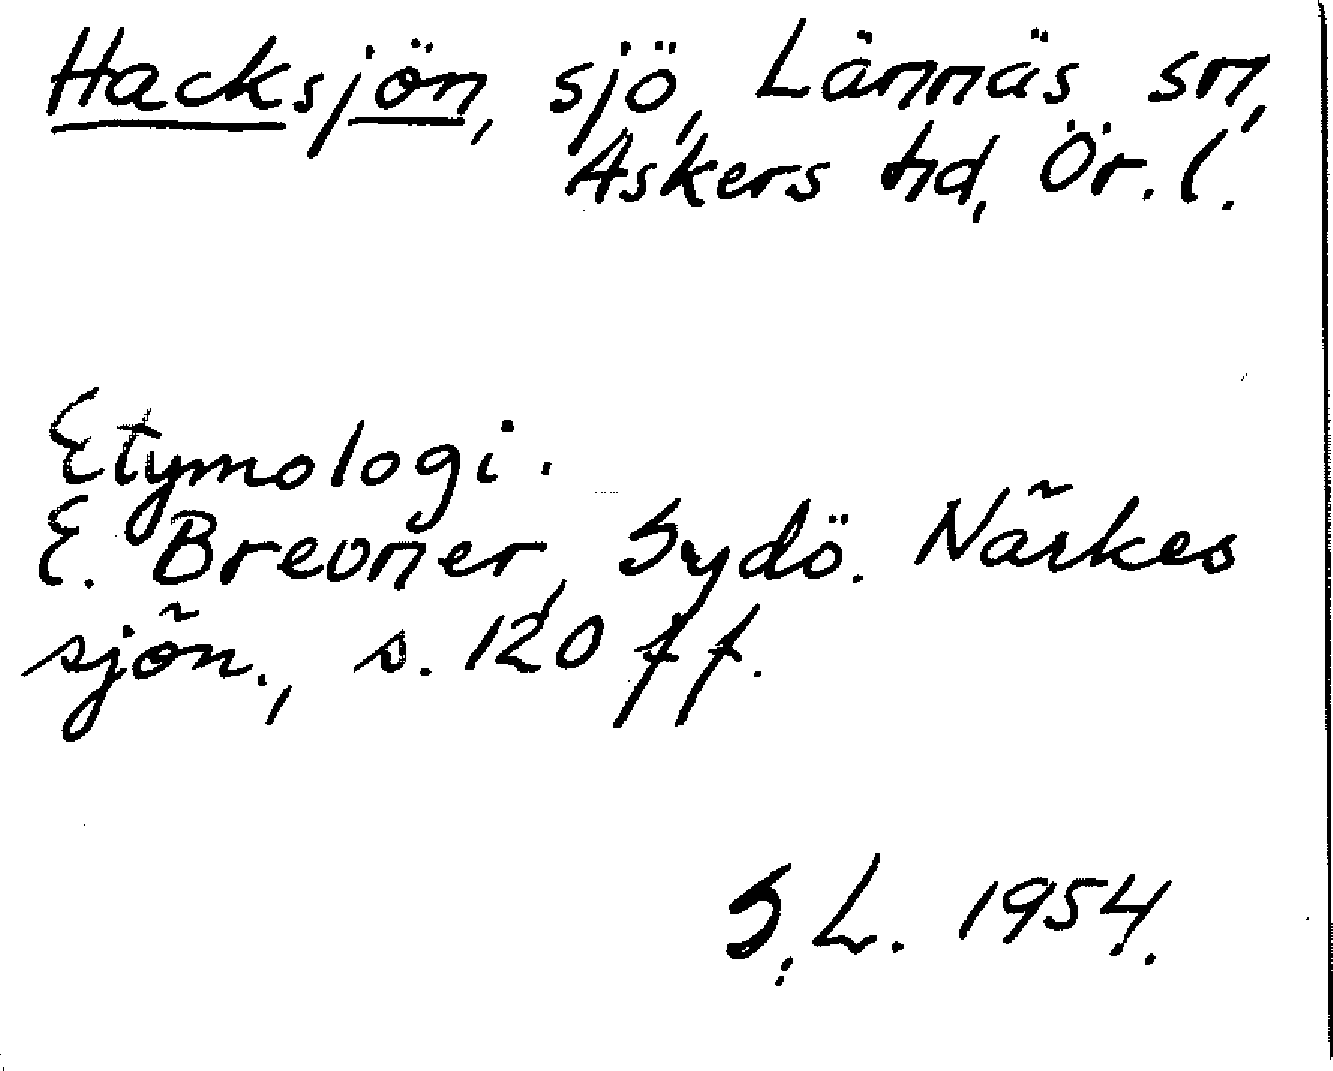 Hacksjön, sjö, Lännäs sn,
Askers hd, Ör. l.
Etymologi.
E. Brevner, Sydö. Närkes
sjön., s. 120 ff.
S.L. 1954.